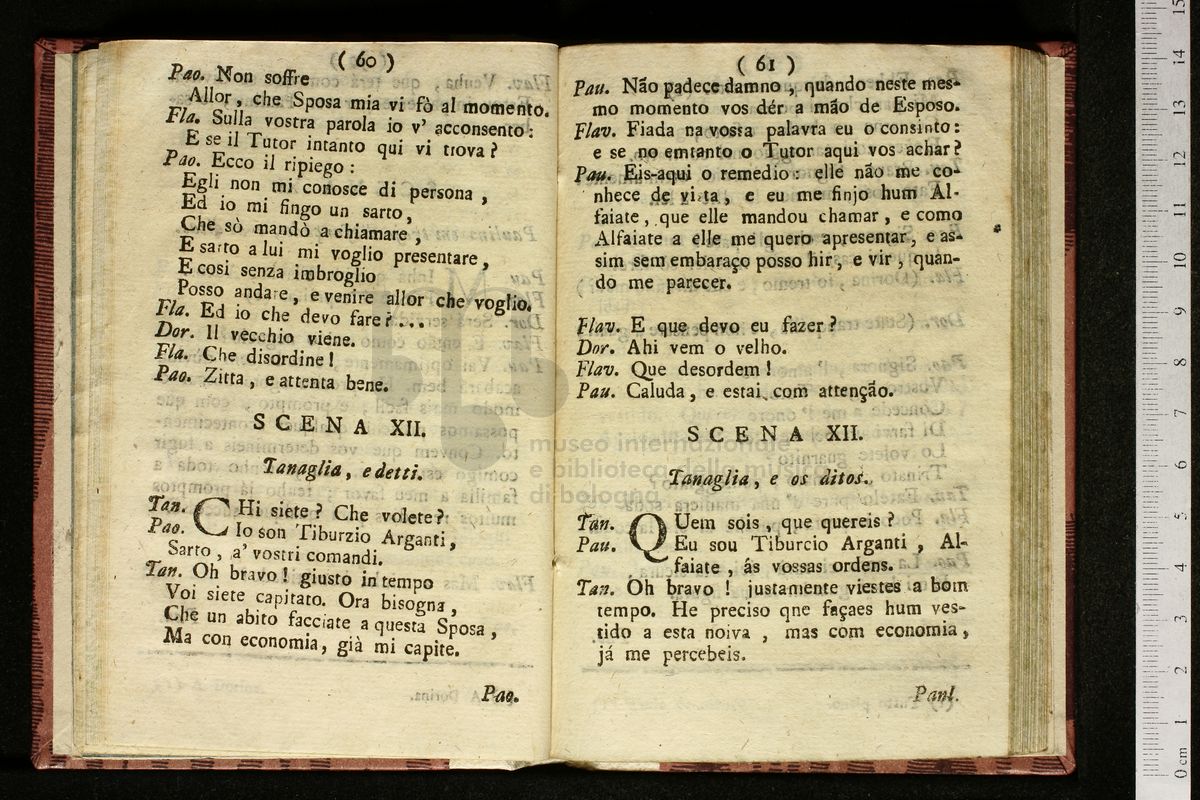 ( 60 )
Pao. Non soffre
Allor, che Sposa mia vi fò al momento.
Fla. Sulla vostra parola io v' acconsento:
E se il Tutor intanto qui vi trova?
Pao. Ecco il ripiego:
Egli non mi conosce di persona,
Ed io mi fingo un sarto,
Che sò mandò a chiamare,
E sarto a lui mi voglio presentare,
E cosi senza imbroglio
Posso andare, e venire allor che voglio.
Fla. Ed io che devo fare?...
Dor. Il vecchio viene.
Fla. Che disordine!
Pao. Zitta, e attenta bene.
SCENA XII.
Tanaglia, e detti.
Tan. CHi siete? Che volete?
Pao. Io son Tiburzio Arganti,
Sarto, a' vostri comandi.
Tan. Oh bravo! giusto in tempo
Voi siete capitato. Ora bisogna,
Che un abito facciate a questa Sposa,
Ma con economia, già mi capite.
Pao.
( 61 )
Pau. Não padece damno, quando neste mes-
mo momento vos dér a mão de Esposo.
Flav. Fiada na vossa palavra eu o consinto:
e se no emtanto o Tutor aqui vos achar?
Pau. Eis-aqui o remedio: elle não me co-
nhece de vista, e eu me finjo hum Al-
faiate, que elle mandou chamar, e como
Alfaiate a elle me quero apresentar, e as-
sim sem embaraço posso hir, e vir, quan-
do me parecer.
Flav. E que devo eu fazer?
Dor. Ahi vem o velho.
Flav. Que desordem!
Pau. Caluda, e estai com attenção.
SCENA XII.
Tanaglia, e os ditos.
Tan. QUem sois, que quereis?
Pau. Eu sou Tiburcio Arganti, Al-
faiate, ás vossas ordens.
Tan. Oh bravo! justamente viestes a bom
tempo. He preciso qne façaes hum ves-
tido a esta noiva, mas com economia,
já me percebeis.
Panl.
museo internazionale
e biblioteca della musica
di bologna
0 cm 1 2 3 4 5 6 7 8 9 10 11 12 13 14 15